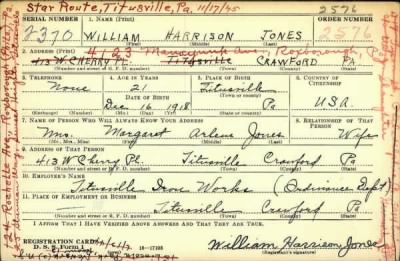 Star Route, Titusville, Pa. 11/17/45
2576
SERIAL NUMBER 1. NAME (Print) ORDER NUMBER
2370 WILLIAM HARRISON JONES 2576
(First) (Middle) (Last)
2. ADDRESS (Print) 4123 Manayunk Ave., Roxborough
413 W CHERRY ST. Titusville CRAWFORD PA
(Number and street or R. F. D. number) (Town) (County) (State)
3. TELEPHONE 4. AGE IN YEARS 5. PLACE OF BIRTH 6. COUNTRY OF CITIZENSHIP
None 21 Titusville
DATE OF BIRTH (Town or county)
Dec 16 1918 Pa U.S.A.
(Mo.) (Day) (Yr.) (State or country)
7. NAME OF PERSON WHO WILL ALWAYS KNOW YOUR ADDRESS 8. RELATIONSHIP OF THAT PERSON
Mrs. Margaret Arlene Jones Wife
(Mr., Mrs., Miss) (First) (Middle) (Last)
9. ADDRESS OF THAT PERSON
413 W Cherry St. Titusville Crawford Pa
(Number and street or R. F. D. number) (Town) (County) (State)
10. EMPLOYER'S NAME
Titusville Iron Works (Ordinance Dept)
11. PLACE OF EMPLOYMENT OR BUSINESS
Titusville Crawford Pa
(Number and street or R. F. D. number) (Town) (County) (State)
I AFFIRM THAT I HAVE VERIFIED ABOVE ANSWERS AND THAT THEY ARE TRUE.
REGISTRATION CARD
D. S. S. Form 1 16—17105
William Harrison Jones
(Registrant's signature)